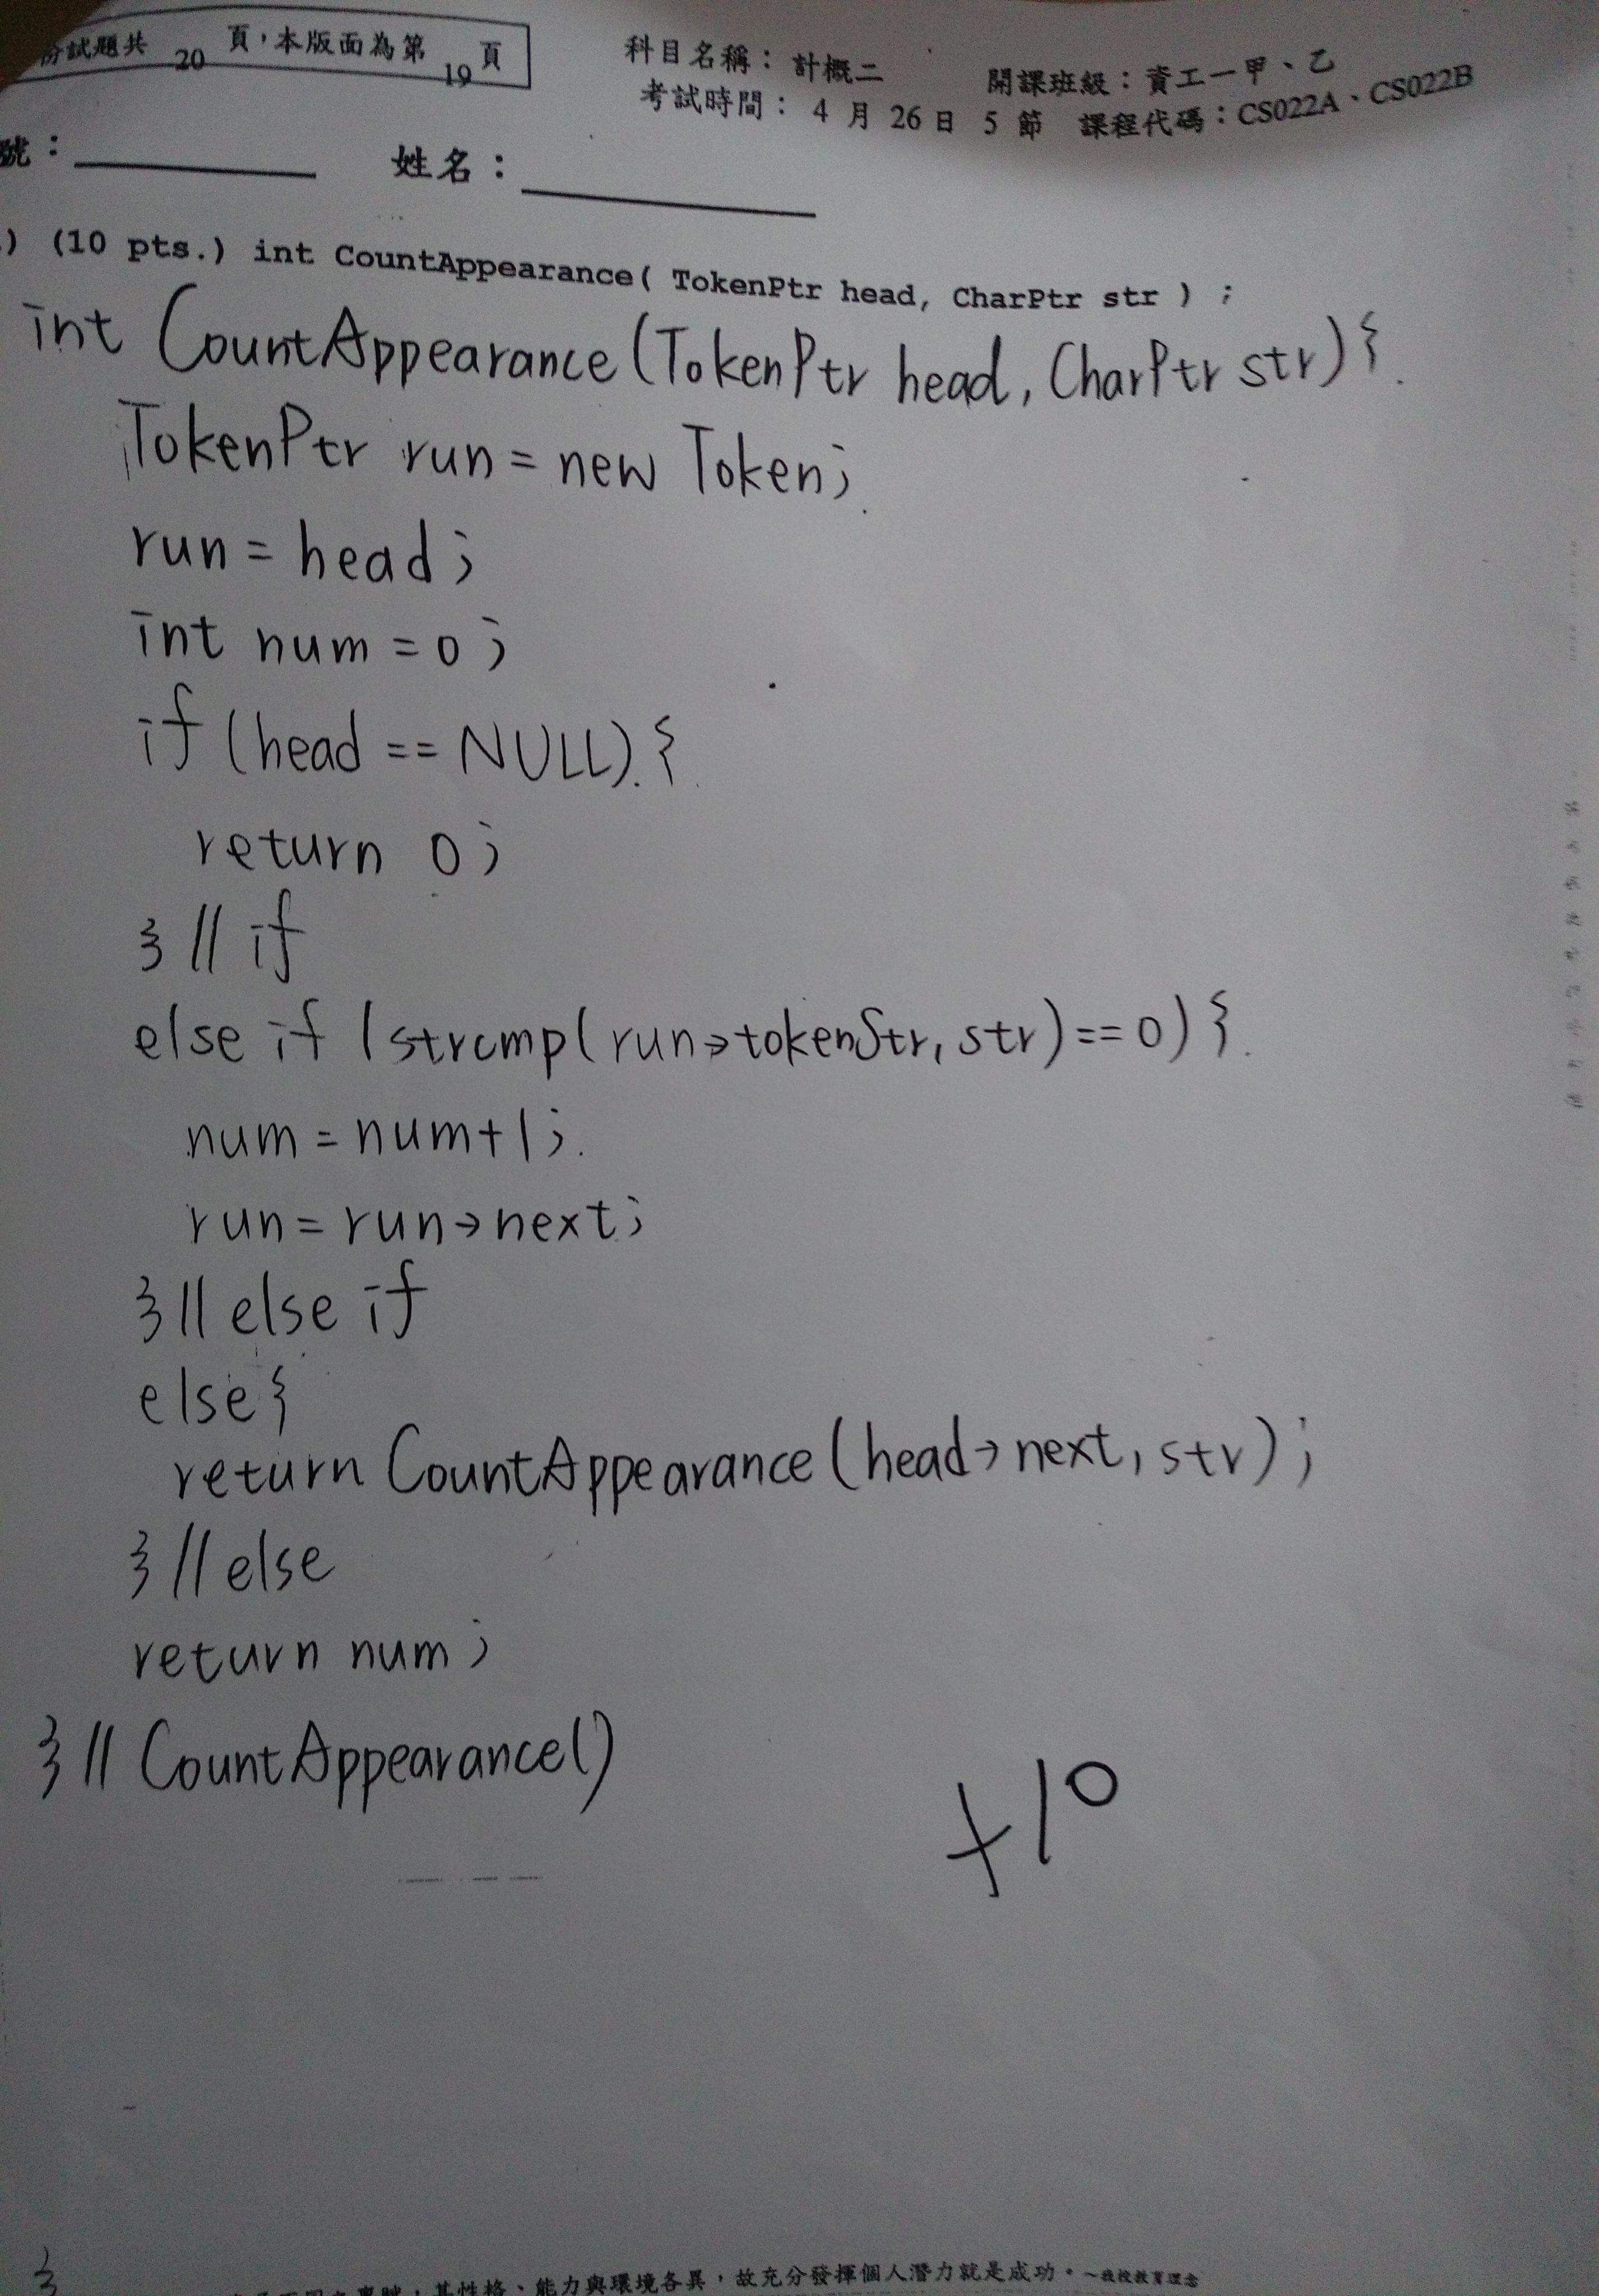 份試題共 20 頁,本版面為第 19 頁
科目名稱: 計概二 開課班級:資工一甲、乙
考試時間: 4 月 26 日 5 節 課程代碼:CS022A、CS022B
號: 姓名:
) (10 pts.) int CountAppearance( TokenPtr head, CharPtr str ) ;
int CountAppearance(TokenPtr head, CharPtr str){
TokenPtr run = new Token;
run = head;
int num = 0;
if (head == NULL) {
return 0;
} // if
else if (strcmp(run->tokenStr, str) == 0) {
num = num+1;
run = run->next;
} // else if
else {
return CountAppearance(head->next, str);
} // else
return num;
} // CountAppearance()
+10
其性格、能力與環境各異,故充分發揮個人潛力就是成功。~我校教育理念